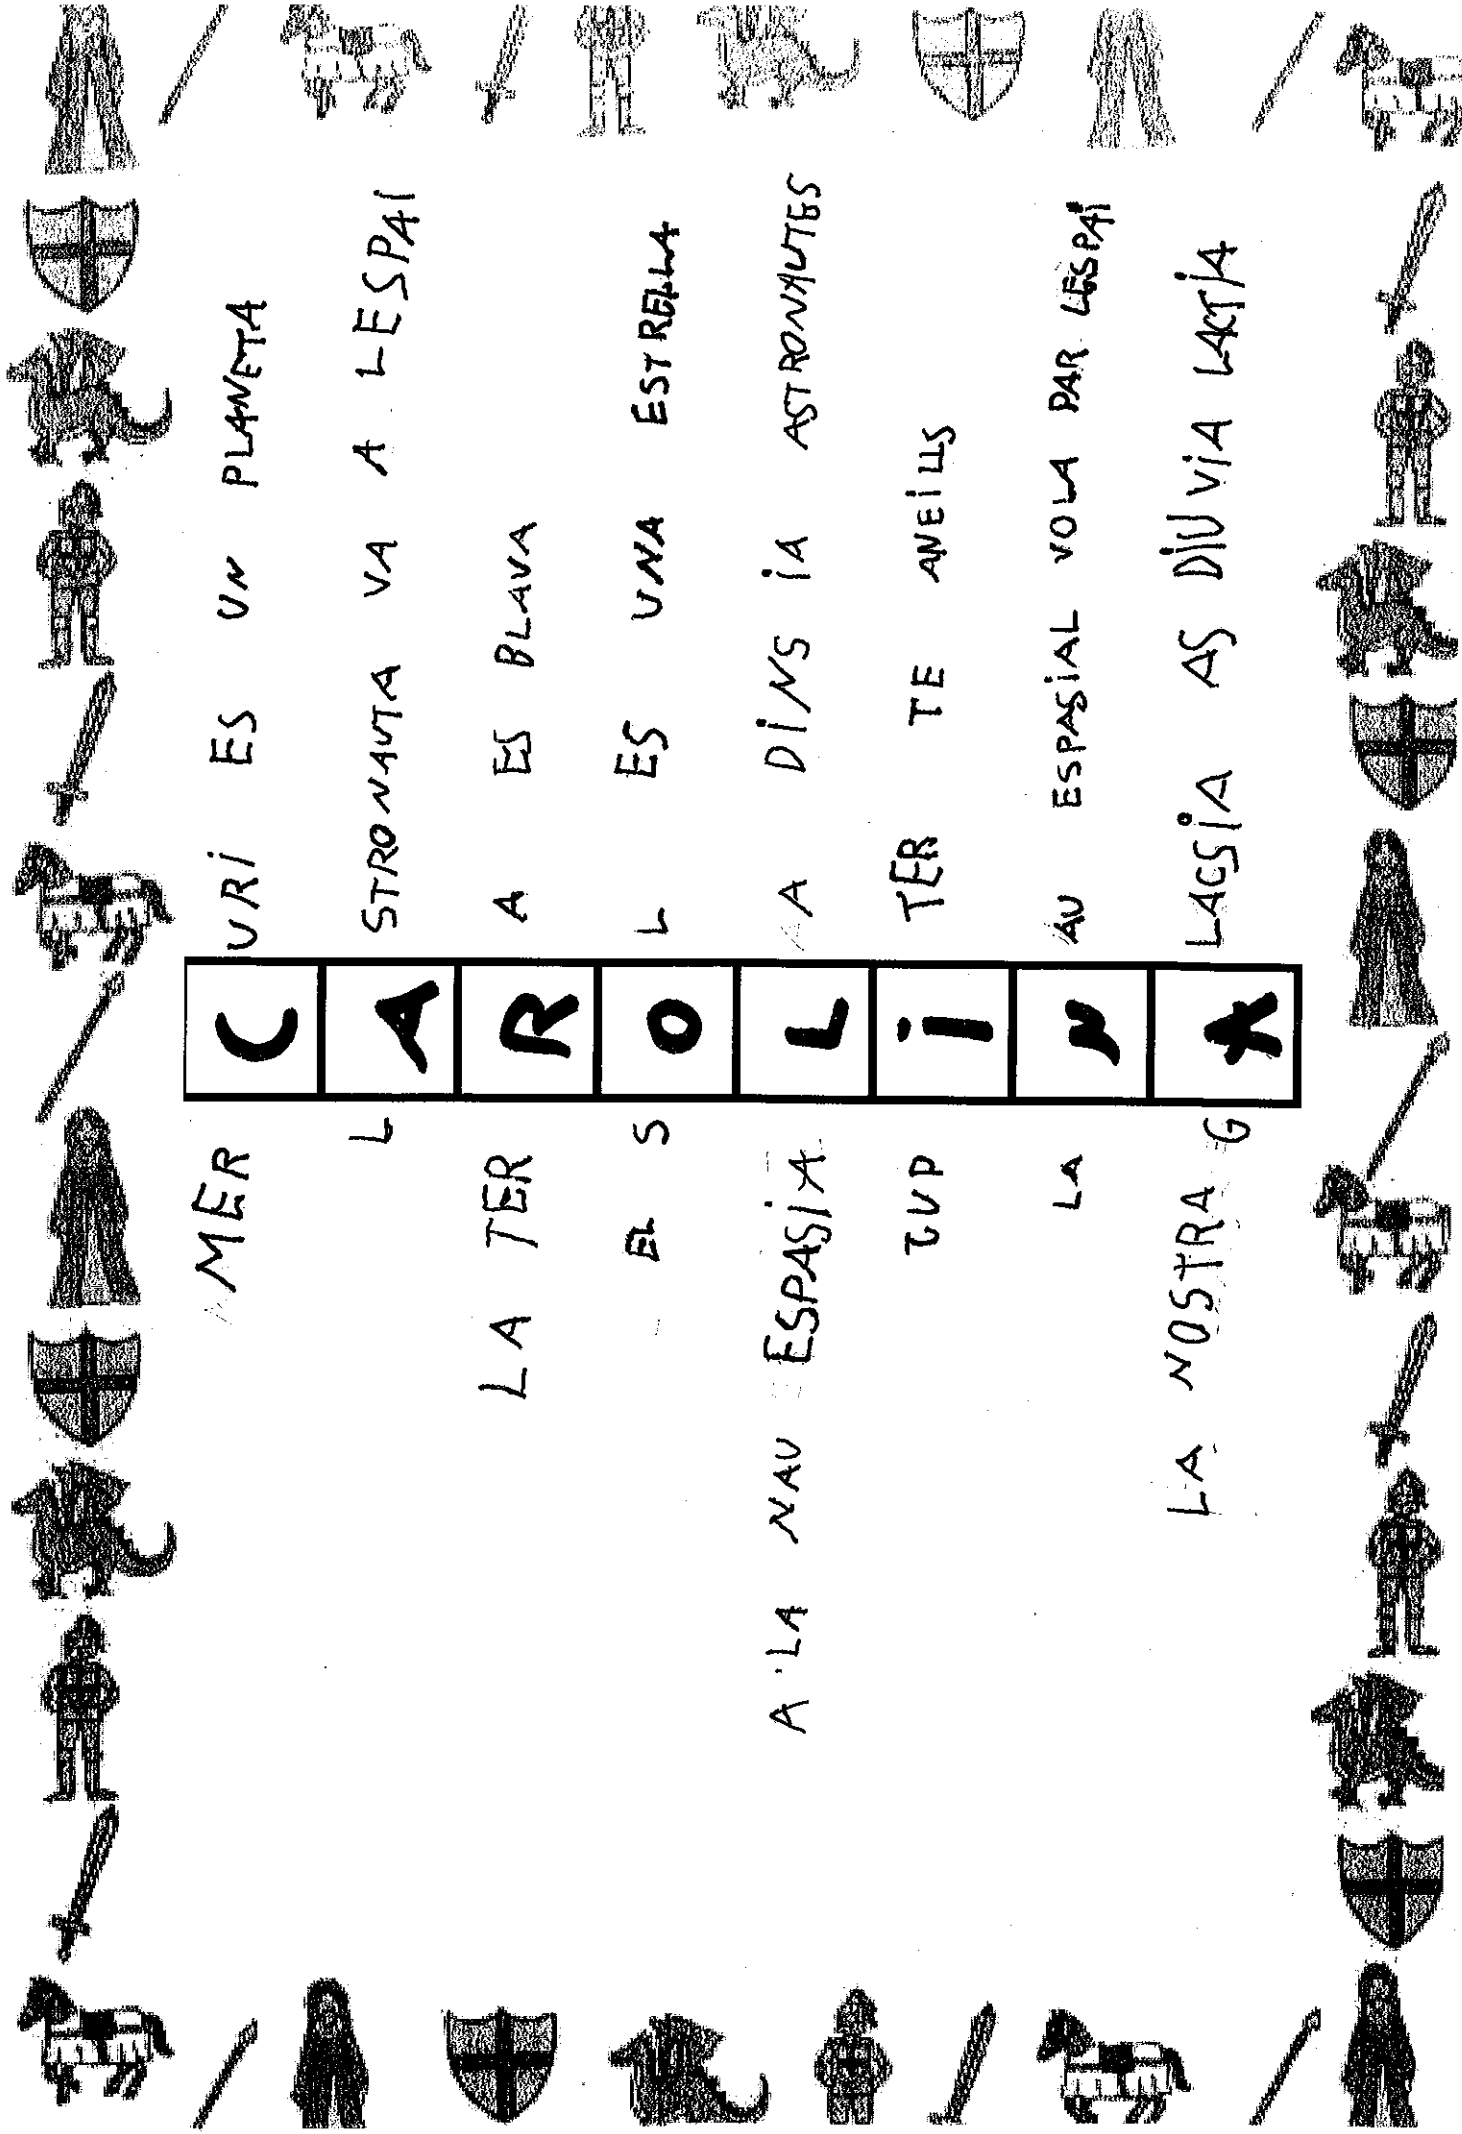 MERCURI ES UN PLANETA
LASTRONAUTA VA A LESPAI
LA TERRA ES BLAVA
EL SOL ES UNA ESTRELLA
A LA NAU ESPASIAL A DINS IA ASTRONAUTES
JUPITER TER TE ANEILLS
LA NAU ESPASIAL VOLA PAR LESPAI
LA NOSTRA GALACSIA AS DIU VIA LACTIA